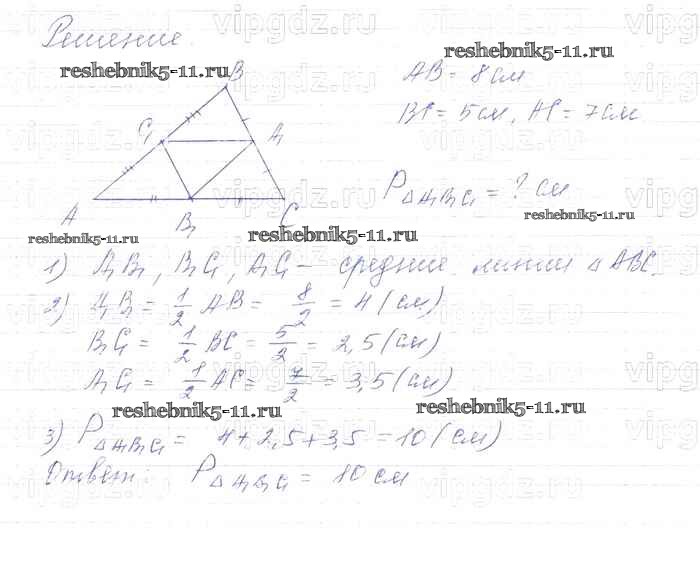 Решение.
reshebnik5-11.ru
reshebnik5-11.ru
B
AB = 8 см
BC = 5 см, AC = 7 см
C₁
A₁
P△A₁B₁C₁ = ? см
A
B₁
C
reshebnik5-11.ru
reshebnik5-11.ru
reshebnik5-11.ru
1) A₁B₁, B₁C₁, A₁C₁ – средние линии △ABC.
2) A₁B₁ = 1/2 AB = 8/2 = 4 (см)
B₁C₁ = 1/2 BC = 5/2 = 2,5 (см)
A₁C₁ = 1/2 AC = 7/2 = 3,5 (см)
reshebnik5-11.ru
reshebnik5-11.ru
3) P△A₁B₁C₁ = 4 + 2,5 + 3,5 = 10 (см)
Ответ: P△A₁B₁C₁ = 10 см
vipgdz.ru